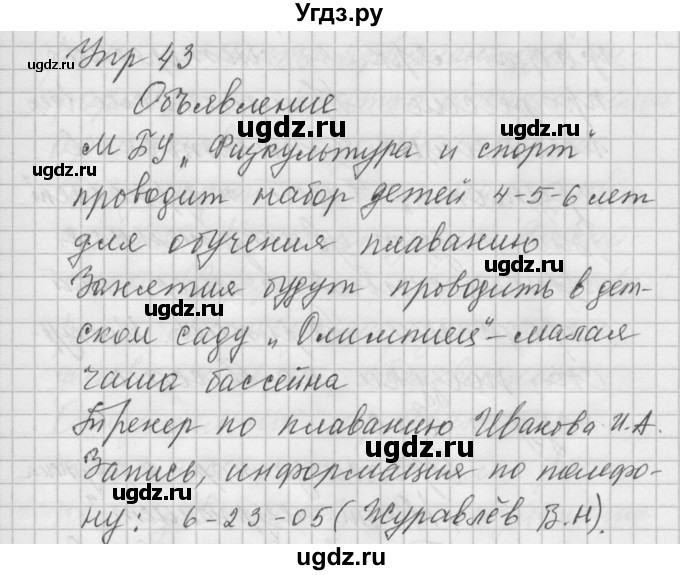 Угдз.ру
Упр 43
Объявление
МБУ „Физкультура и спорт"
проводит набор детей 4-5-6 лет
для обучения плаванию
Занятия будут проводить в дет-
ском саду „Олимпиец"-малая
чаша бассейна
Тренер по плаванию Иванова И.А.
Запись, информация по телефо-
ну: 6-23-05 (Журавлёв В.Н).
ugdz.ru
ugdz.ru
ugdz.ru
ugdz.ru
ugdz.ru
ugdz.ru
ugdz.ru
ugdz.ru
ugdz.ru
ugdz.ru
ugdz.ru